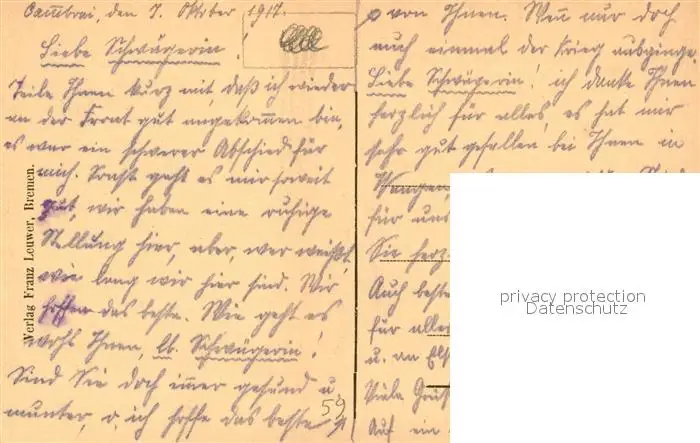 Cambrai, den 7. Oktober 1917.
Liebe Schwägerin!
Teile Ihnen kurz mit, daß ich wieder
an der Front gut angekommen bin,
es war ein schwerer Abschied für
mich. Sonst geht es mir soweit
gut, wir haben eine ruhige
Stellung hier, aber, wer weißt
wie lang wir hier sind. Wir
hoffen das beste. Wie geht es
wohl Ihnen, lb. Schwägerin!
Sind Sie doch imer gesund u.
munter, o, ich hoffe das beste
59
von Ihnen. Wen nur doch
auch einmal der Krieg ausginge.
Liebe Schwägerin! ich danke Ihnen
herzlich für alles, es hat mir
sehr gut gefallen bei Ihnen in
Wangen
für uns
Sie herz
Auch beste
für alle
u. an Els
Viele Grüß
Auf ein
Verlag Franz Leuwer, Bremen.
privacy protection
Datenschutz